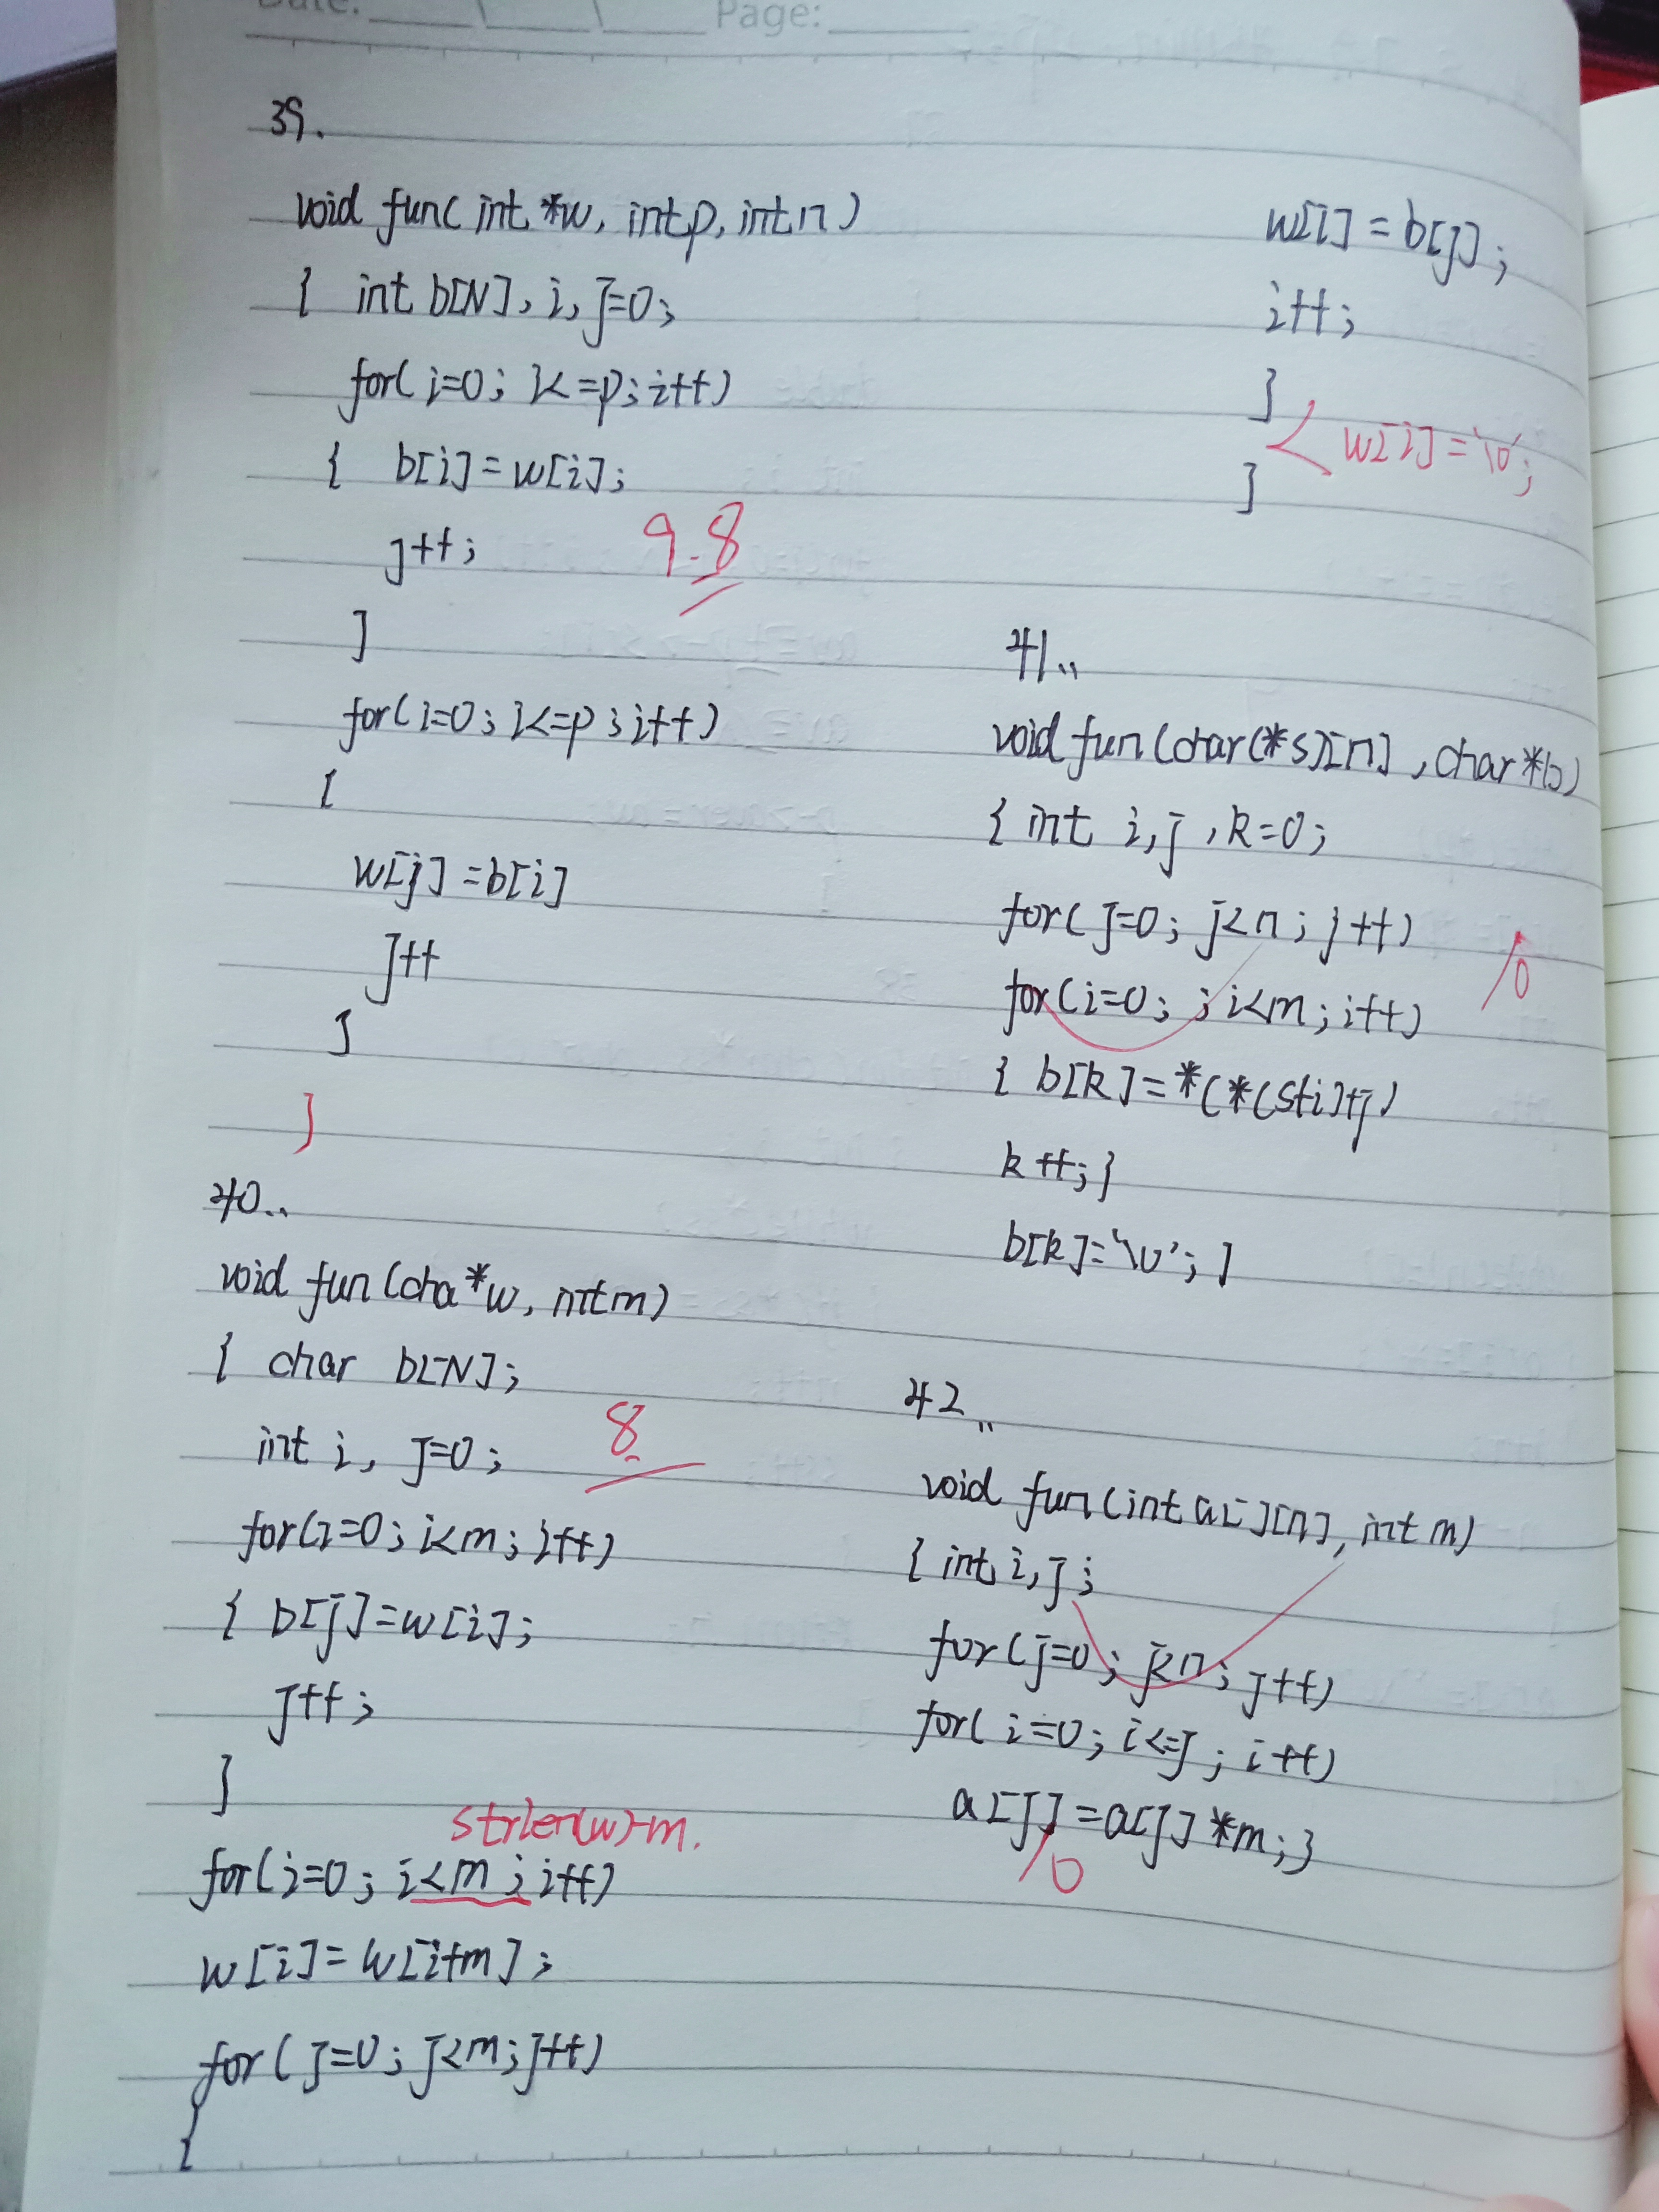 Date: Page:
39.
void fun( int *w, int p, int n )
{ int b[N], i, j=0;
for( i=0; i<=p; i++)
{ b[i]=w[i];
j++;
9.8
}
for( i=0; i<=p; i++)
{
w[j]=b[i]
j++
}
}
40..
void fun (cha*w, int m)
{ char b[N];
int i, j=0;
8
for(i=0; i<m; i++)
{ b[j]=w[i];
j++;
}
strlen(w)-m.
for(i=0; i<m; i++)
w[i]=w[i+m];
for( j=0; j<m; j++)
{
w[i]=b[j];
i++;
}
w[i]='\0';
}
41..
void fun (char(*s)[n], char*b)
{ int i,j, k=0;
for( j=0; j<n; j++)
10
for(i=0; ; i<m; i++)
{ b[k]=*(*(s+i)+j)
k++; }
b[k]='\0'; }
42..
void fun (int a[][n], int m)
{ int i, j;
for (j=0; j<n; j++)
for( i=0; i<=j; i++)
a[j]=a[j]*m;}
10